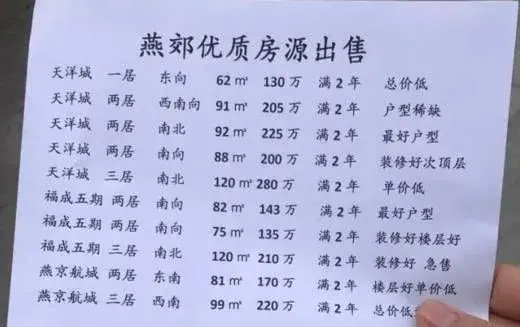 燕郊优质房源出售
天洋城 一居 东向 62㎡ 130万 满2年 总价低
天洋城 两居 西南向 91㎡ 205万 满2年 户型稀缺
天洋城 两居 南北 92㎡ 225万 满2年 最好户型
天洋城 两居 南向 88㎡ 200万 满2年 装修好次顶层
天洋城 三居 南北 120㎡ 280万 满2年 单价低
福成五期 两居 南向 82㎡ 143万 满2年 最好户型
福成五期 两居 南向 75㎡ 135万 满2年 装修好楼层好
福成五期 三居 南北 120㎡ 210万 满2年 装修好 急售
燕京航城 两居 东南 81㎡ 170万 满2年 楼层好单价低
燕京航城 三居 西南 99㎡ 220万 满2年 总价低